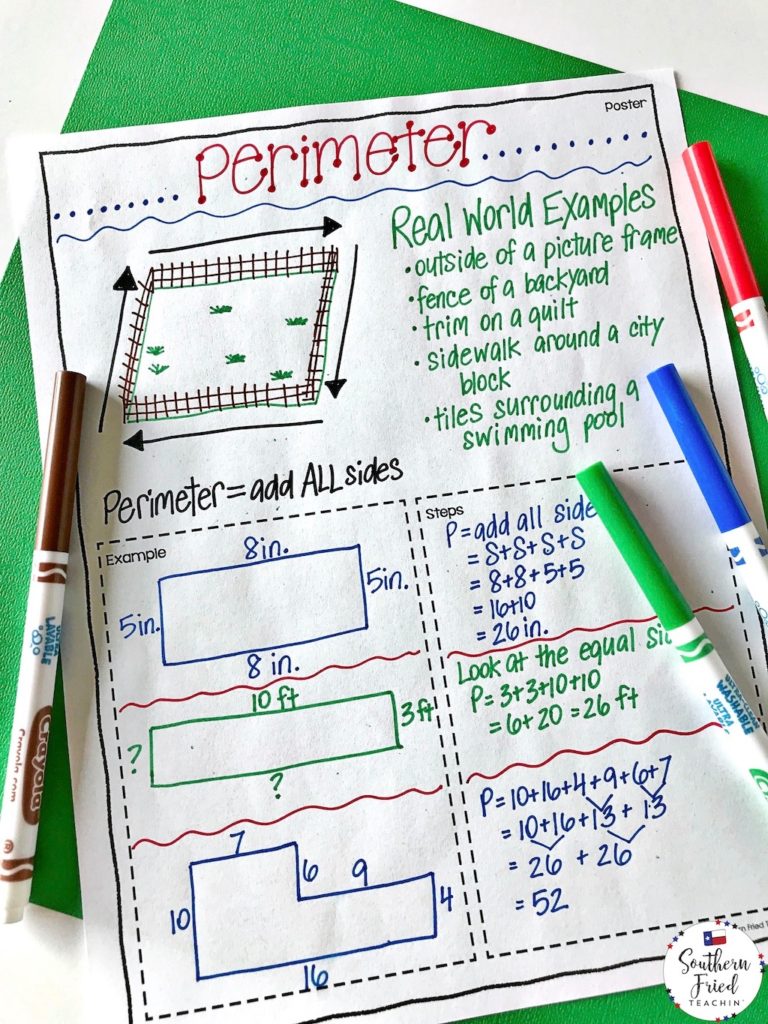 Poster
Perimeter
Real World Examples
• outside of a picture frame
• fence of a backyard
• trim on a quilt
• sidewalk around a city
block
• tiles surrounding a
swimming pool
Perimeter = add ALL sides
Example
8 in.
5 in.
5 in.
8 in.
10 ft
3 ft
?
?
7
6
9
10
4
16
Steps
P = add all side
= S+S+S+S
= 8+8+5+5
= 16+10
= 26 in.
Look at the equal si
P = 3+3+10+10
= 6+20 = 26 ft
P = 10+16+4+9+6+7
= 10+16+13+13
= 26 + 26
= 52
Crayola
Crayola.com
WASHABLE
ULTRA
n Fried T
Southern
Fried
TEACHIN'